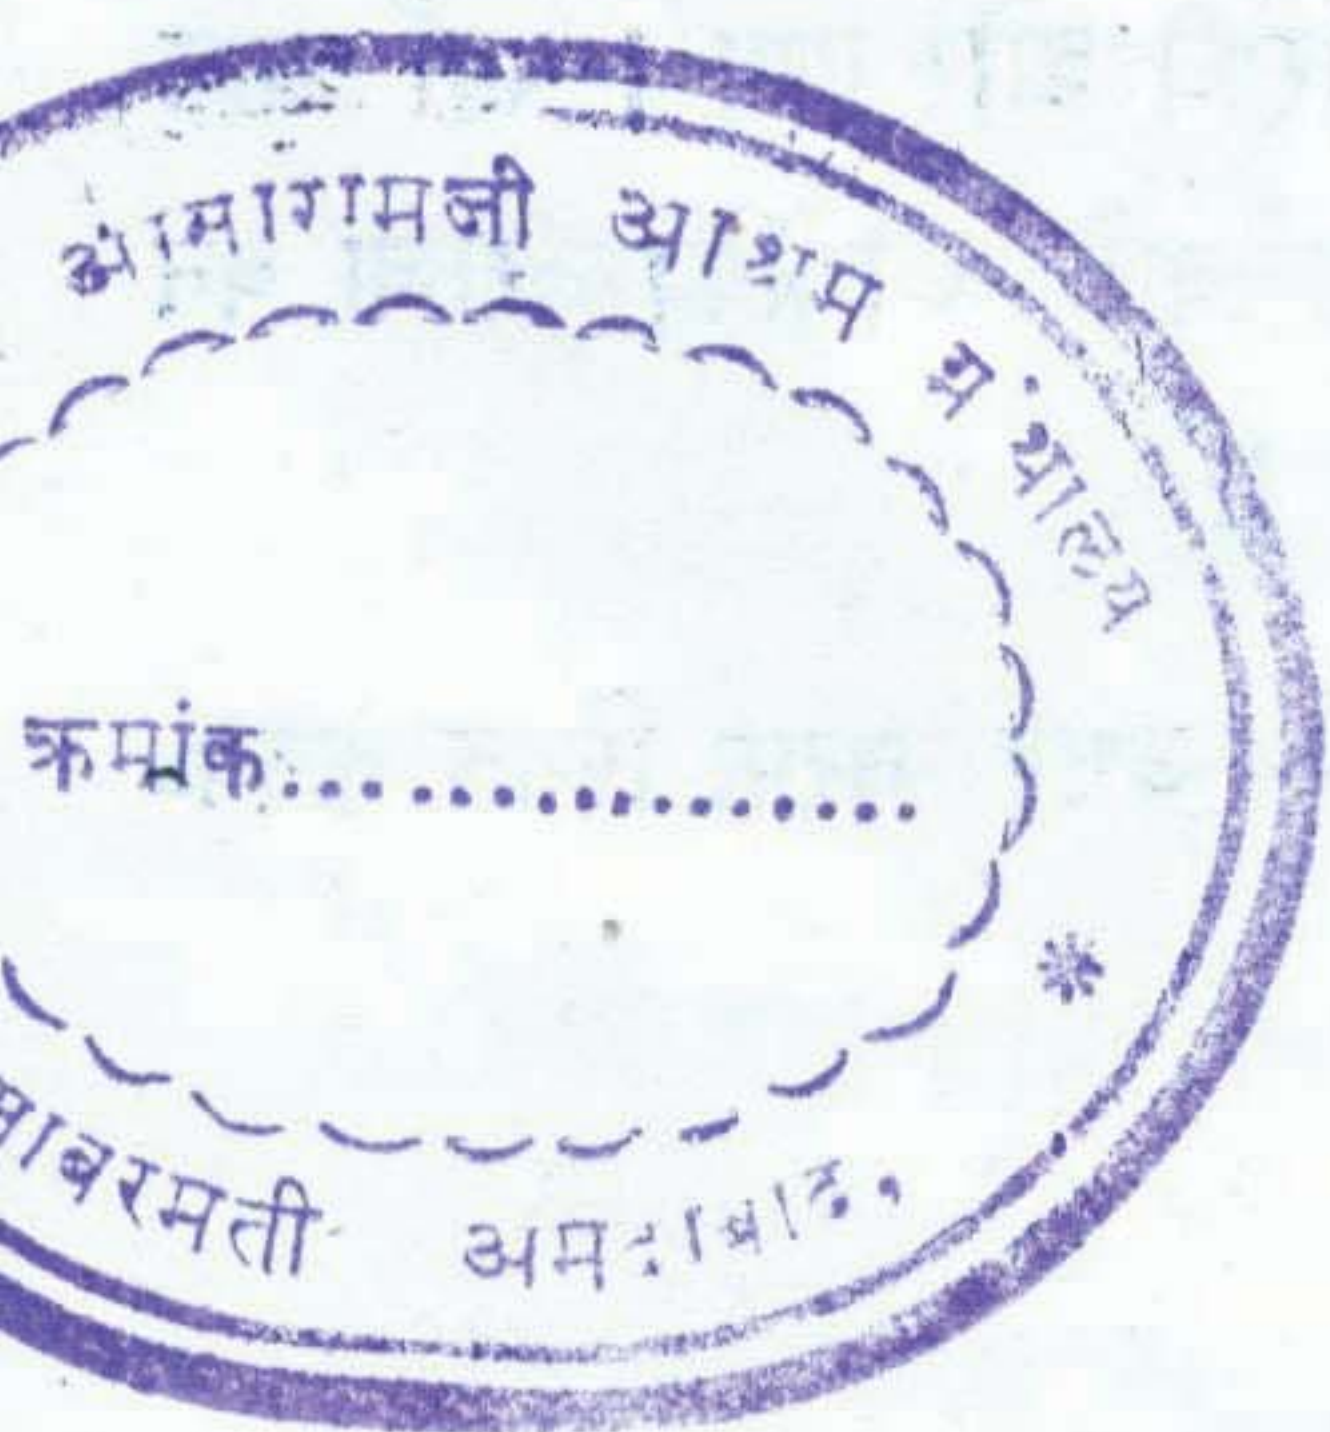 आसारामजी आश्रम ग्रंथालय
क्रमांक..................
साबरमती अमदावाद.